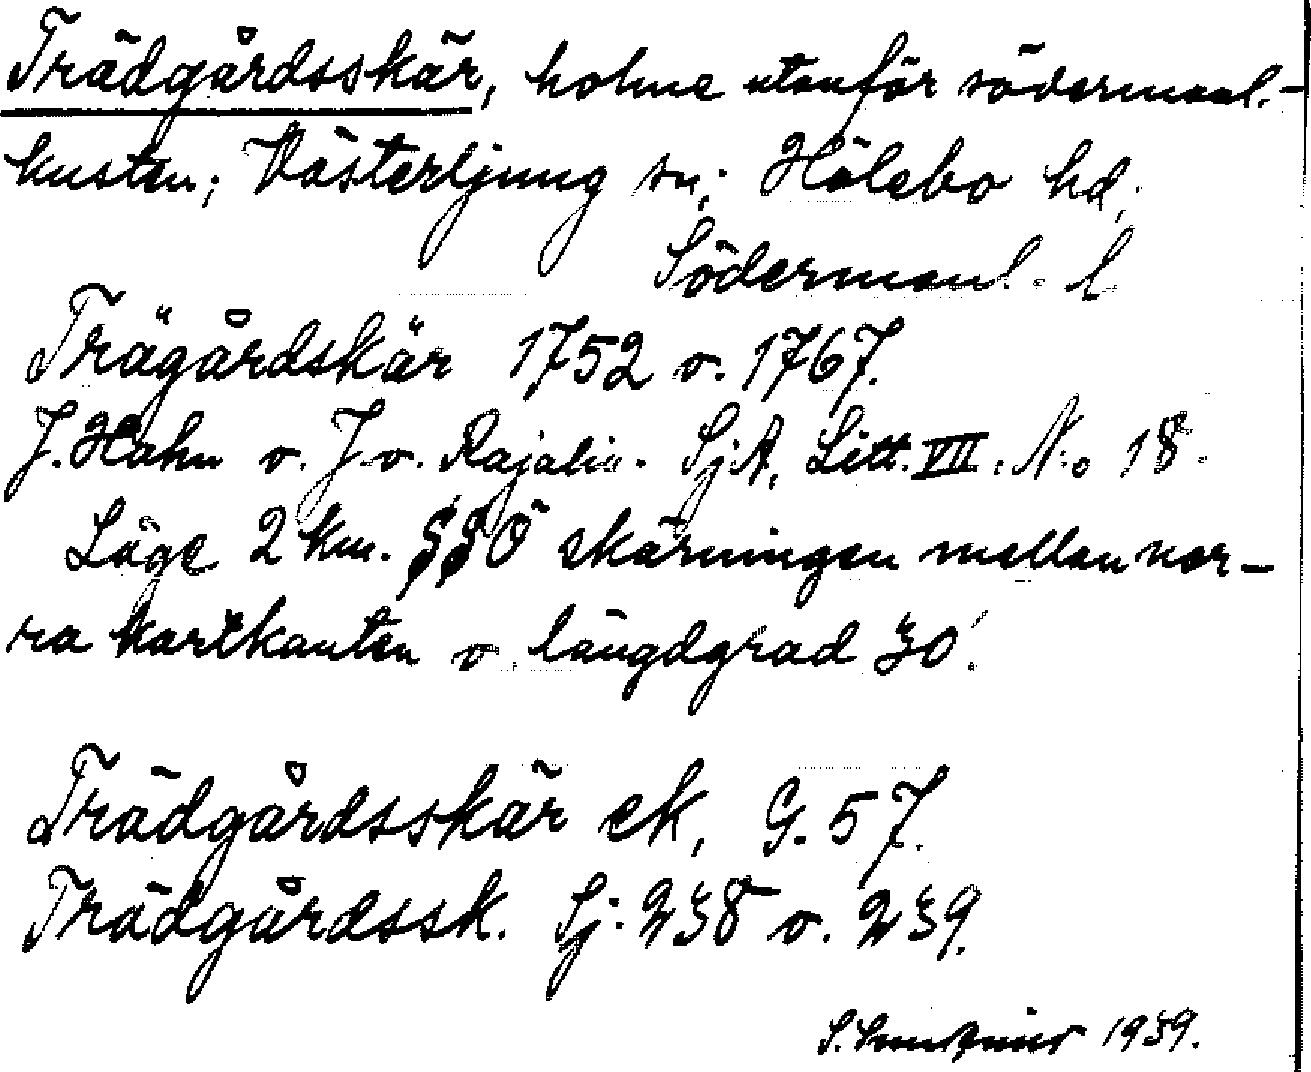 Trädgårdsskär, holme utanför södermanl.-
kusten; Västerljung sn; Hölebo hd;
Södermanl. l
Trägårdskär 1752 o. 1767.
J. Hahn o. J. v. Rajalin. SjA, Litt. VII. No 18.
Läge 2 km. SSÖ skärningen mellan nor-
ra kartkanten o. längdgrad 30'.
Trädgårdsskär ek, G. 57.
Trädgårdssk. Sj: 238 o. 239.
S. 1939.